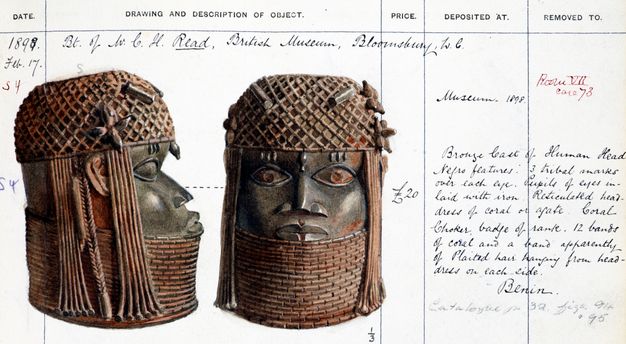 DATE.
DRAWING AND DESCRIPTION OF OBJECT.
PRICE.
DEPOSITED AT.
REMOVED TO.
1898.
Bt. of W. C. H. Read, British Museum, Bloomsbury, W.C.
Feb. 17.
S
S4
Museum. 1898
Room VII
case 73
S4
£20
Bronze Cast of Human Head
Negro features. 3 tribal marks
over each eye. Pupils of eyes in-
laid with iron. Reticulated head-
dress of coral or agate. Coral
Choker, badge of rank. 12 bands
of coral and a band apparently
of Plaited hair hanging from head-
dress on each side.
Benin.
Catalogue p 32 figs. 94
" 95
1/3